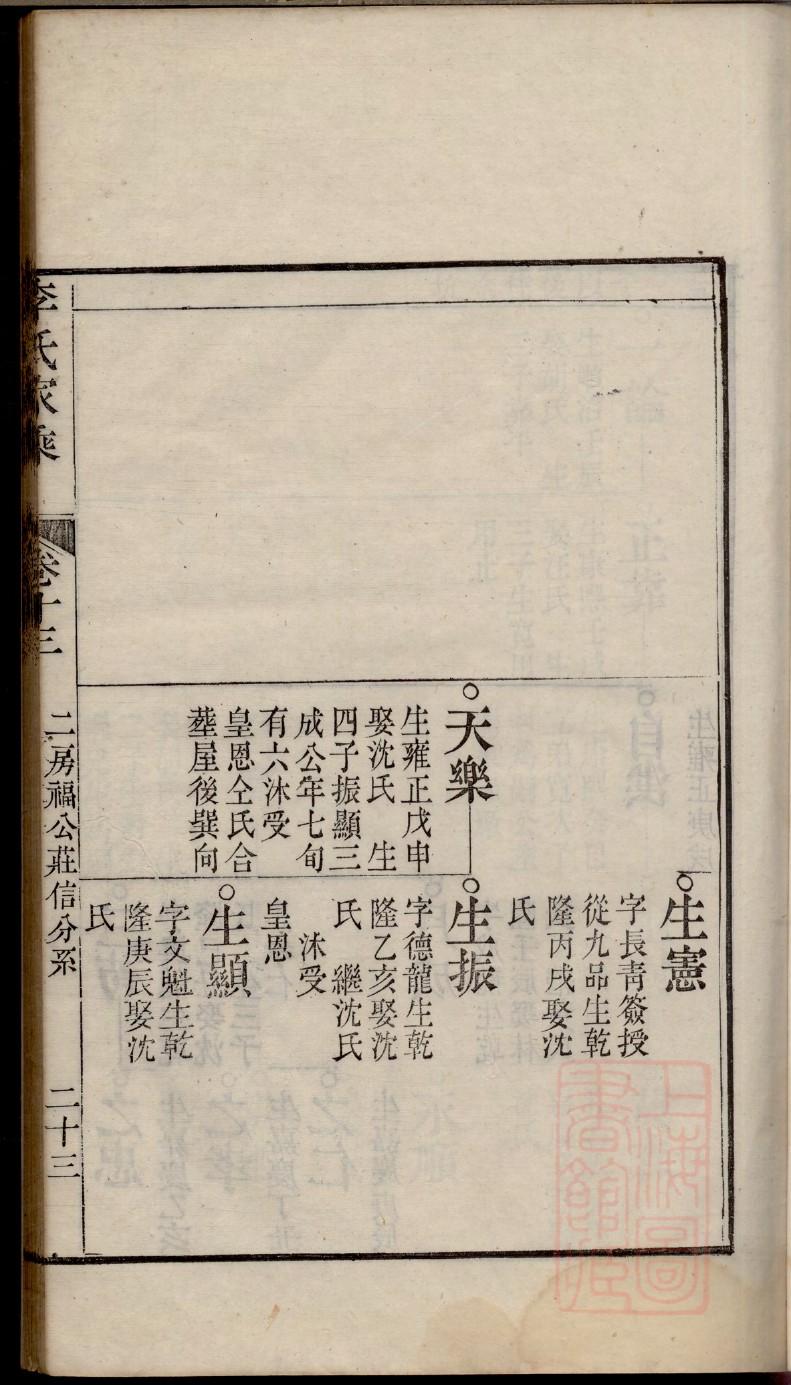 生憲
字長青簽授
從九品生乾
隆丙戌娶沈
氏
天樂
生雍正戊申
娶沈氏 生
四子振顯三
成公年七旬
有六沐受
皇恩仝氏合
塟屋後巽向
生振
字德龍生乾
隆乙亥娶沈
氏 繼沈氏
沐受
皇恩
生顯
字文魁生乾
隆庚辰娶沈
氏
李氏家乘
卷十三
二房福公莊信分系
二十三
上海圖
書館藏